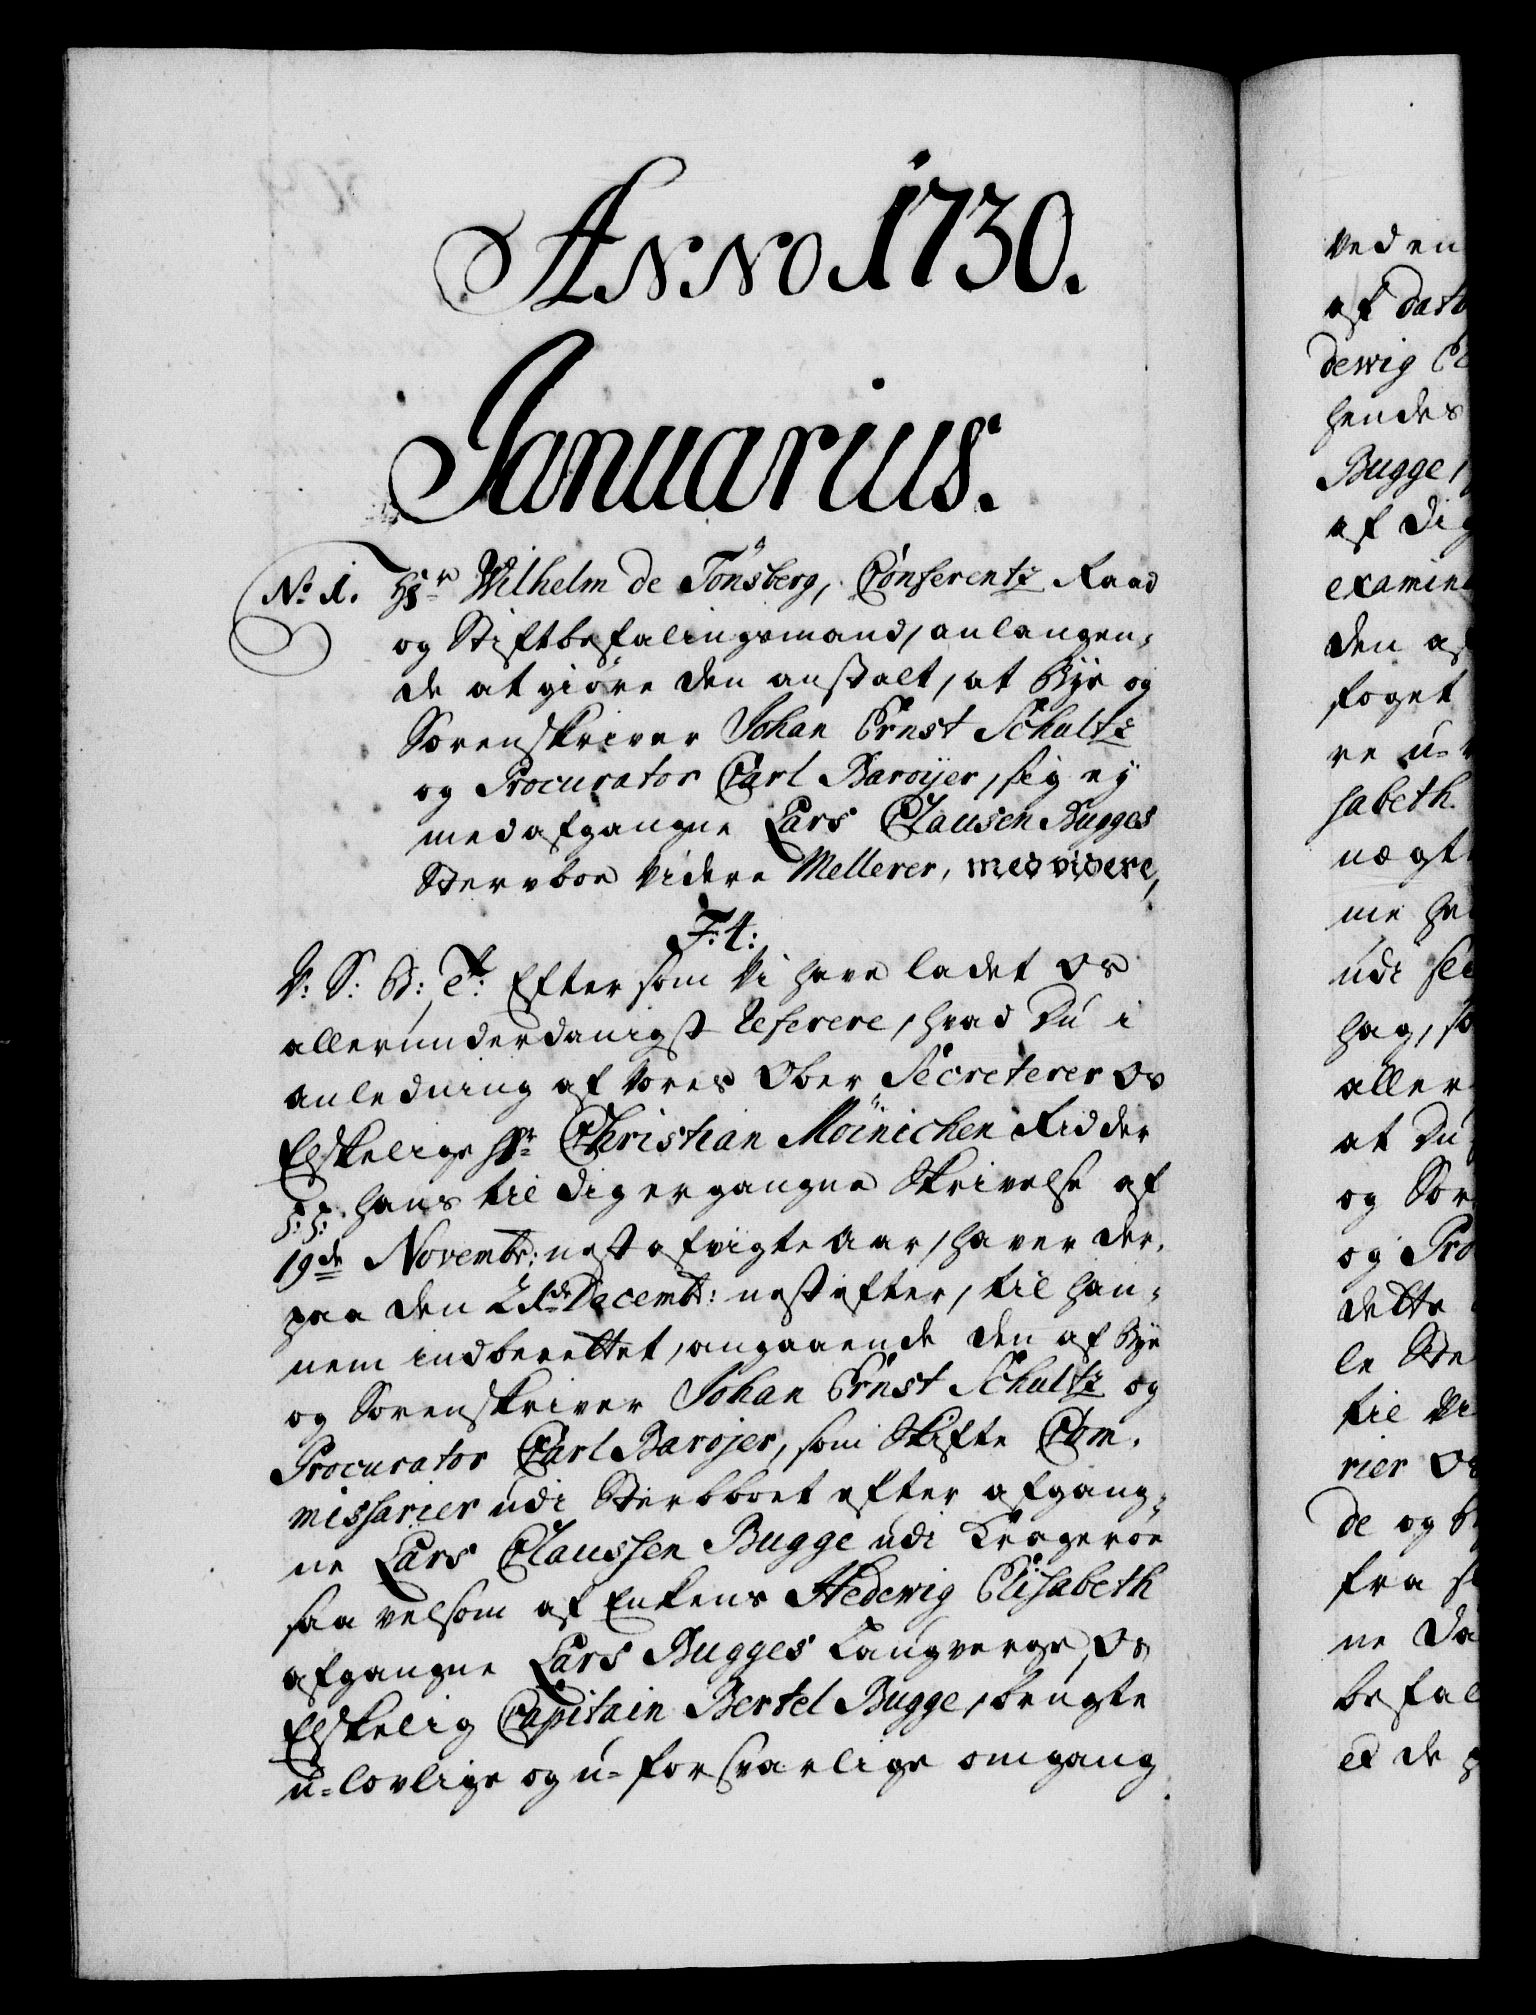 Anno 1730.
Januarius.
No. 1. Hr Wilhelm de Tönsberg, Conferentz Raad
og Stiftbefalingsmand, anlangen-
de at giöre den anstalt, at Bye og
Sorenskriver Johan Ernst Schultz
og Procurator Carl Baroyer, sig ey
med afgangne Lars Clausen Bugges
Stervboe videre Mellerer, med videre,
F: 4:
V: S: G: T: Eftersom Vi have ladet Os
allerunderdanigst Referere, hvad Du i
anledning af Vores Ober Secreterer Os
Elskelige Hr Christian Möinichen Ridder
p.p. hans til dig ergangne Skrivelse af
19de Novembr: nest afvigte Aar, haver der-
paa den Decembr: nest efter, til han-
nem indberettet, angaaende den af Bye
og Sorenskriver Johan Ernst Schultz og
Procurator Carl Barojer, som Skifte Com-
missarier udi Sterbboet efter afgang-
ne Lars Claussen Bugge udi Krageröe
saa velsom af Enkens Hedewig Elisabeth
afgangne Lars Bugges Laugverge, Os
Elskelig Capitain Bertel Bugge, brugte
u-lovlige og u-forsvarlige omgang
ved en
af dat
dewig El
hendes
Bugge,
af dig
examin
den af
foget
re u-
sabeth.
nægt
me he
udi
hag, so
aller
at Du
og Sor
og Pro
dette
le Ste
til Vi
rier Os
de og b
fra s
ne Da
befal
et de p